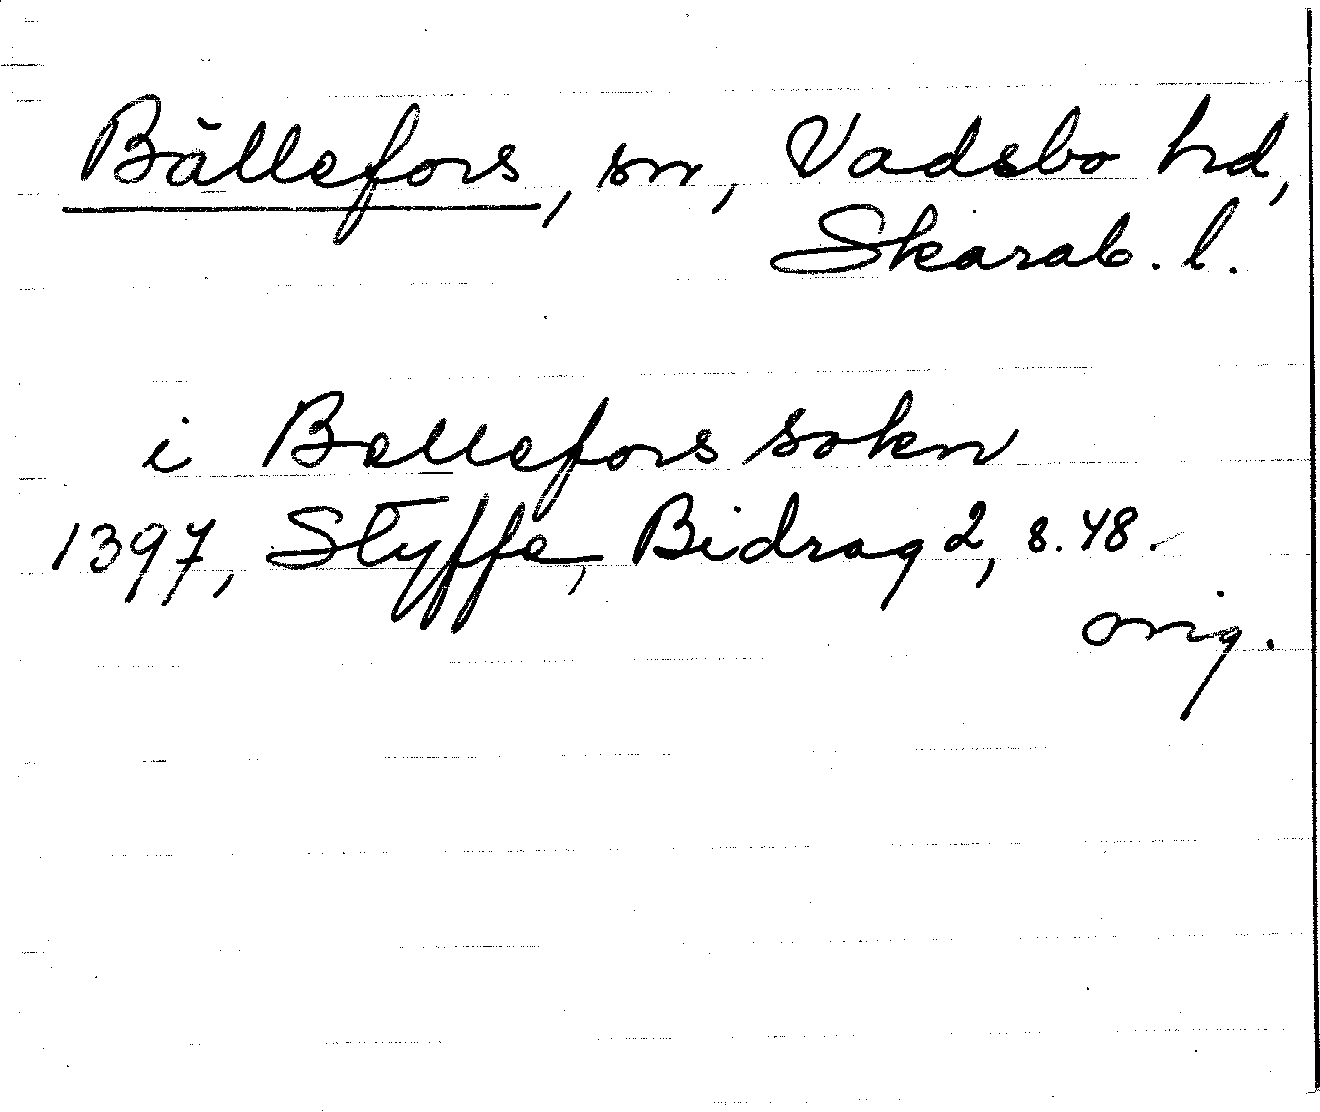 Bällefors, sn, Vadsbo hd,
Skarab. l.
i Bellefors sokn
1397, Styffe, Bidrag 2, s. 48.
orig.